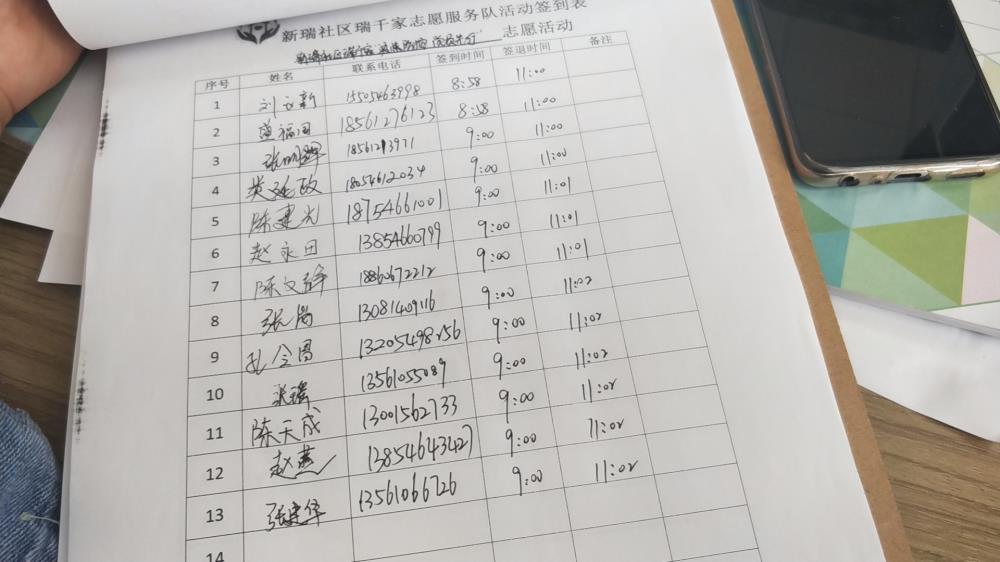 新瑞社区瑞千家志愿服务队活动签到表
志愿活动
序号 姓名 联系电话 签到时间 签退时间 备注
1 刘 新 15505463998 8:58 11:00
2 盖福国 18561276123 8:58 11:00
3 张明辉 18561213971 9:00 11:00
4 黄 政 18054612034 9:00 11:00
5 陈建光 18754661001 9:00 11:01
6 赵永田 13854660799 9:00 11:01
7 陈文静 18860672212 9:00 11:01
8 张 13081409116 9:00 11:02
9 孔令国 13205498256 9:00 11:02
10 张瑞 13561055089 9:00 11:02
11 陈天成 13001562733 9:00 11:02
12 赵燕 13854643427 9:00 11:02
13 张建华 13561066726 9:00 11:02
14